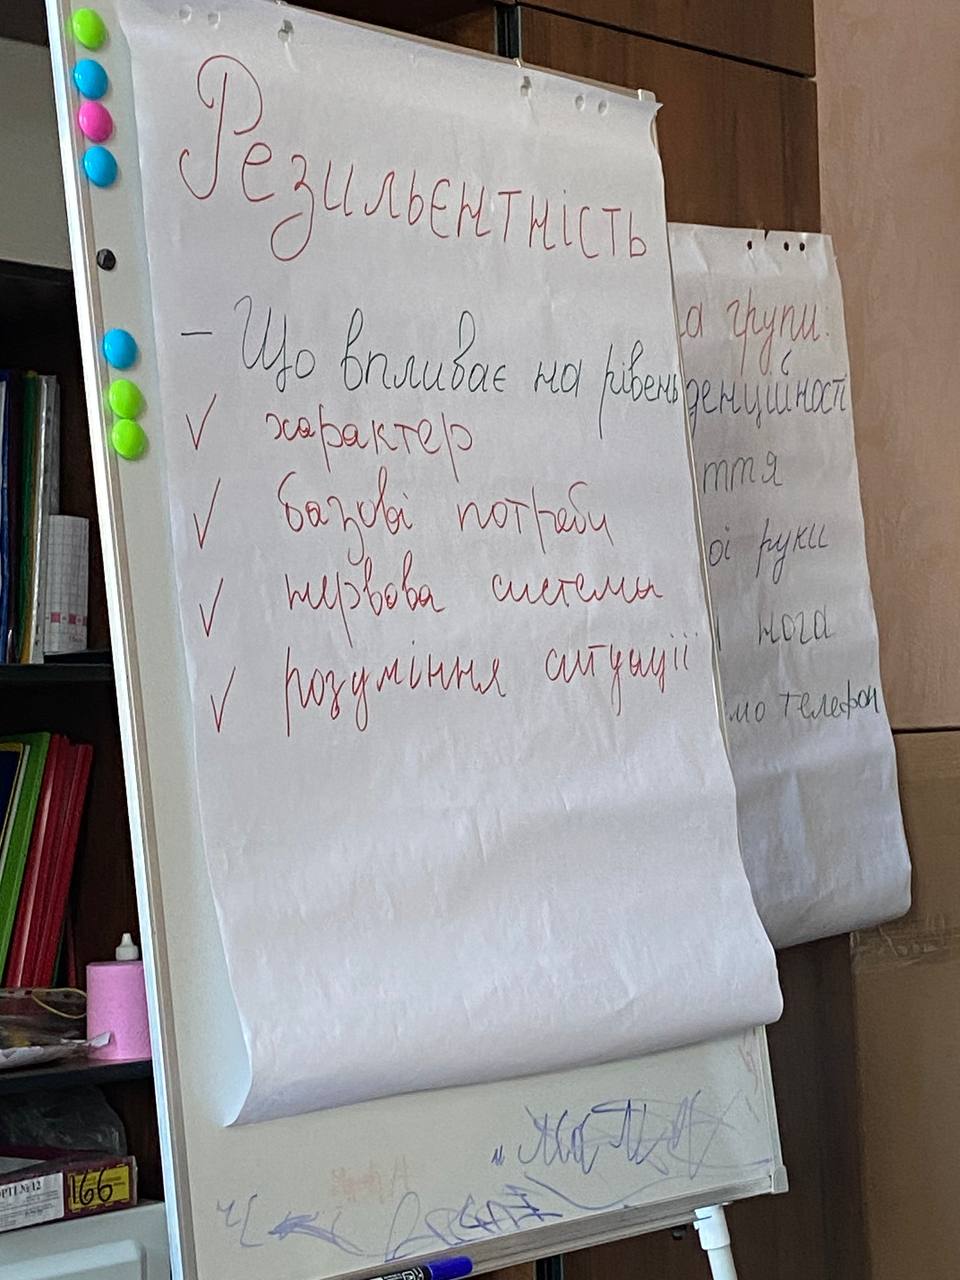 Резильєнтність
- Що впливає на рівень
✓ характер
✓ базові потреби
✓ нервова система
✓ розуміння ситуації
а групи:
денційності
ття
ої руки
нога
мо телефон
166